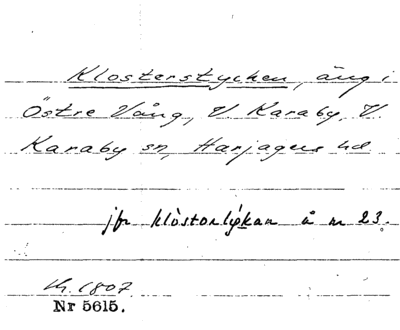 Klosterstycken, äng i
Östre Vång, V. Karaby, V.
Karaby sn, Harjagers hd
jfr klòstorlýkan å nr 23.
Kh. 1807.
Nr 5615.